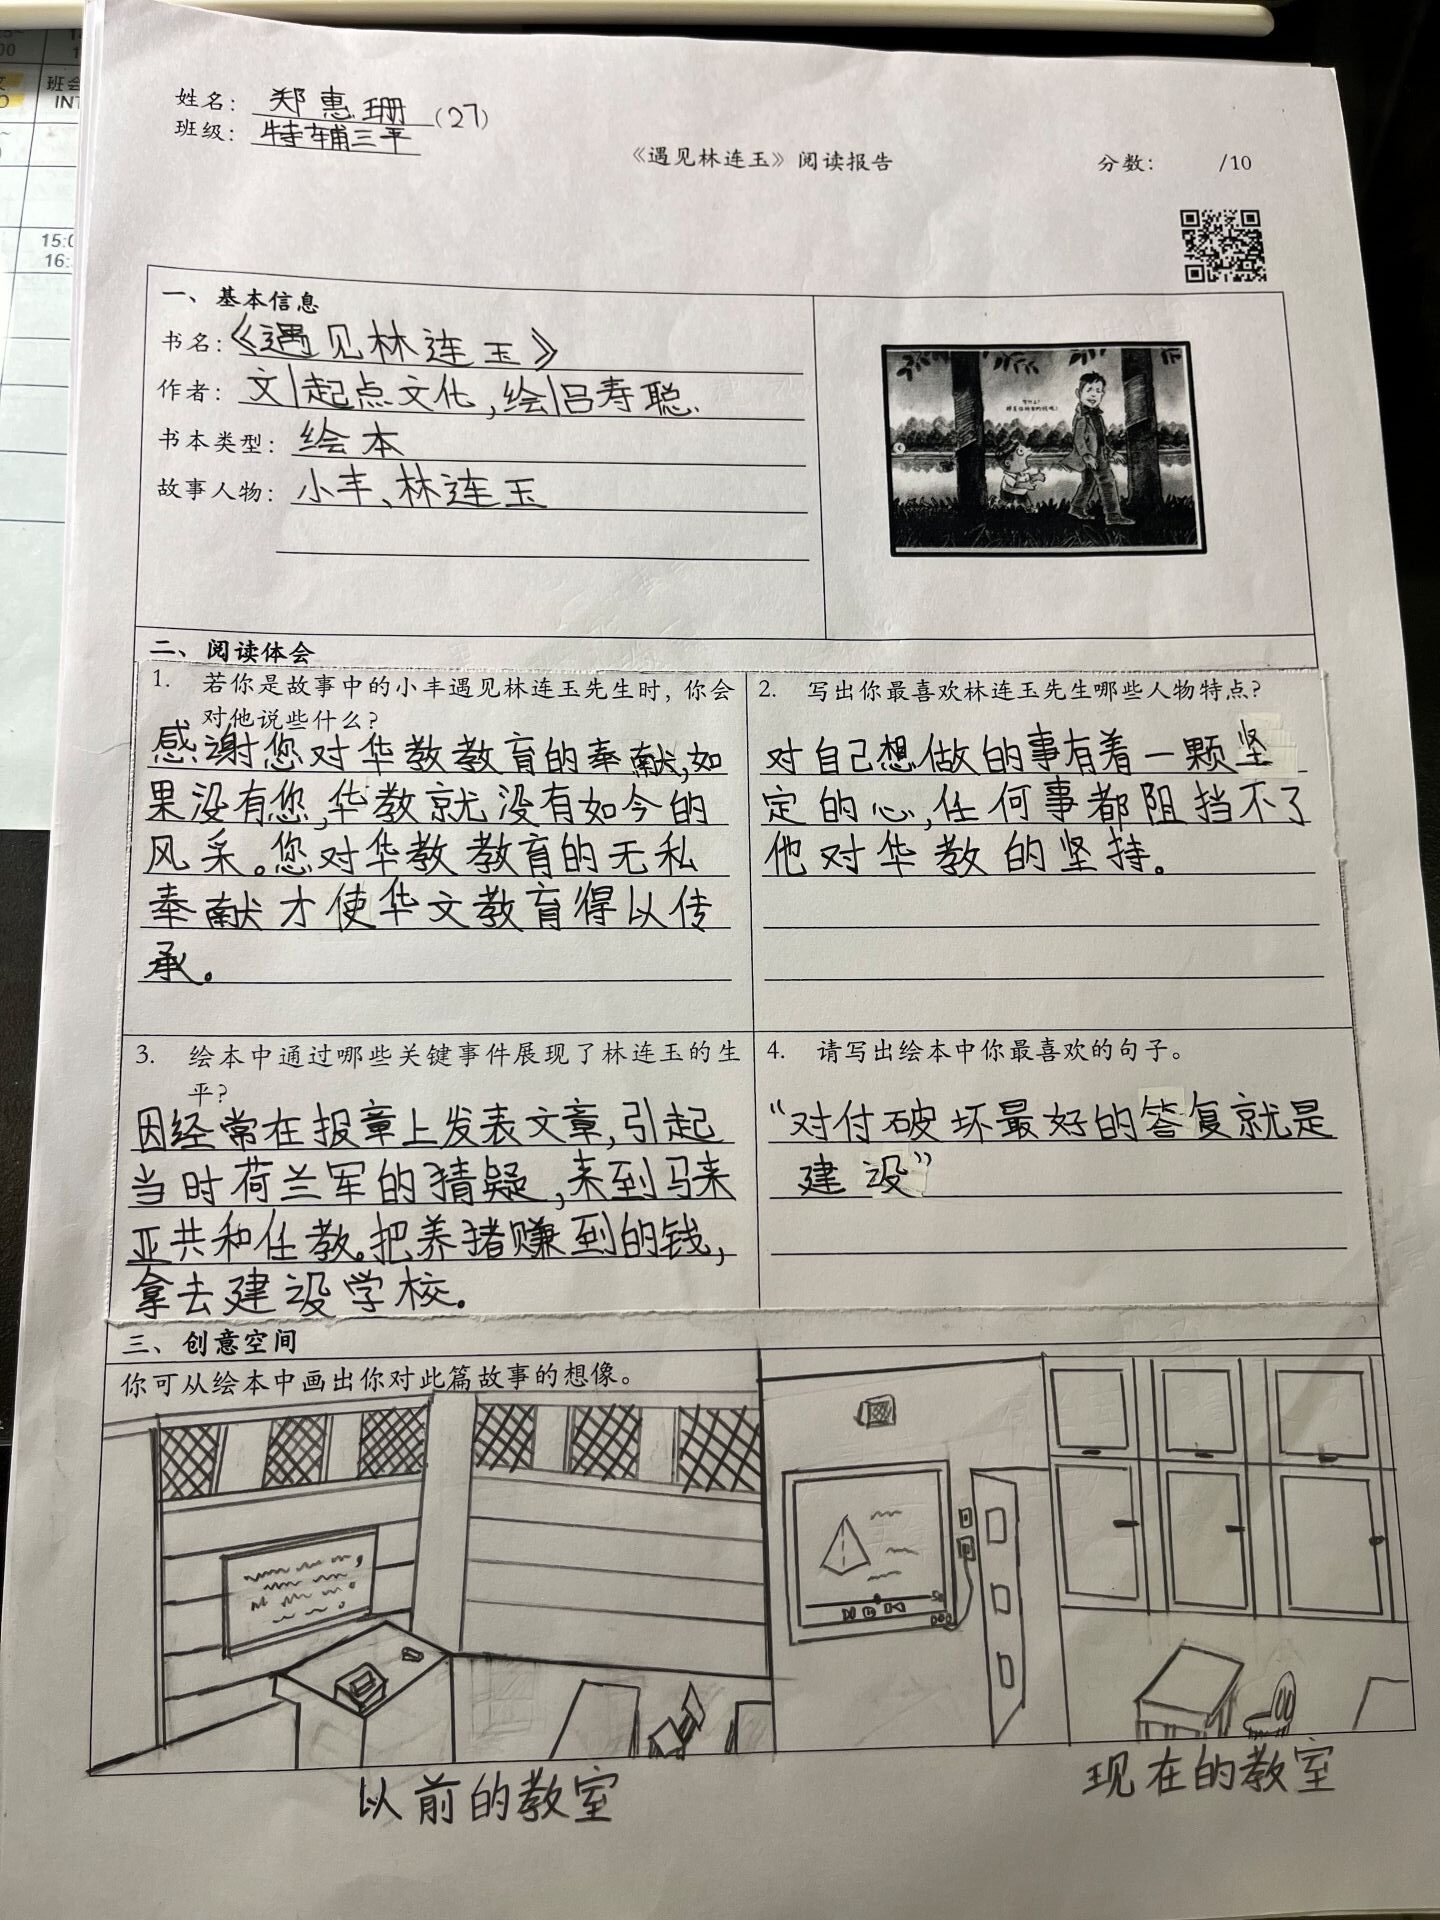 文
班会
INT
15:0
16:
姓名: 郑惠珊 (27)
班级: 特辅三平
《遇见林连玉》阅读报告
分数: /10
一、基本信息
书名:《遇见林连玉》
作者: 文|起点文化,绘|吕寿聪.
书本类型: 绘本
故事人物: 小丰、林连玉
二、阅读体会
1. 若你是故事中的小丰遇见林连玉先生时,你会
对他说些什么?
感谢您对华教教育的奉献,如
果没有您,华教就没有如今的
风采。您对华教教育的无私
奉献才使华文教育得以传
承。
2. 写出你最喜欢林连玉先生哪些人物特点?
对自己想做的事有着一颗坚
定的心,任何事都阻挡不了
他对华教的坚持。
3. 绘本中通过哪些关键事件展现了林连玉的生
平?
因经常在报章上发表文章,引起
当时荷兰军的猜疑,来到马来
亚共和任教。把养猪赚到的钱,
拿去建设学校.
4. 请写出绘本中你最喜欢的句子。
“对付破坏最好的答复就是
建设”
三、创意空间
你可从绘本中画出你对此篇故事的想像。
以前的教室
现在的教室